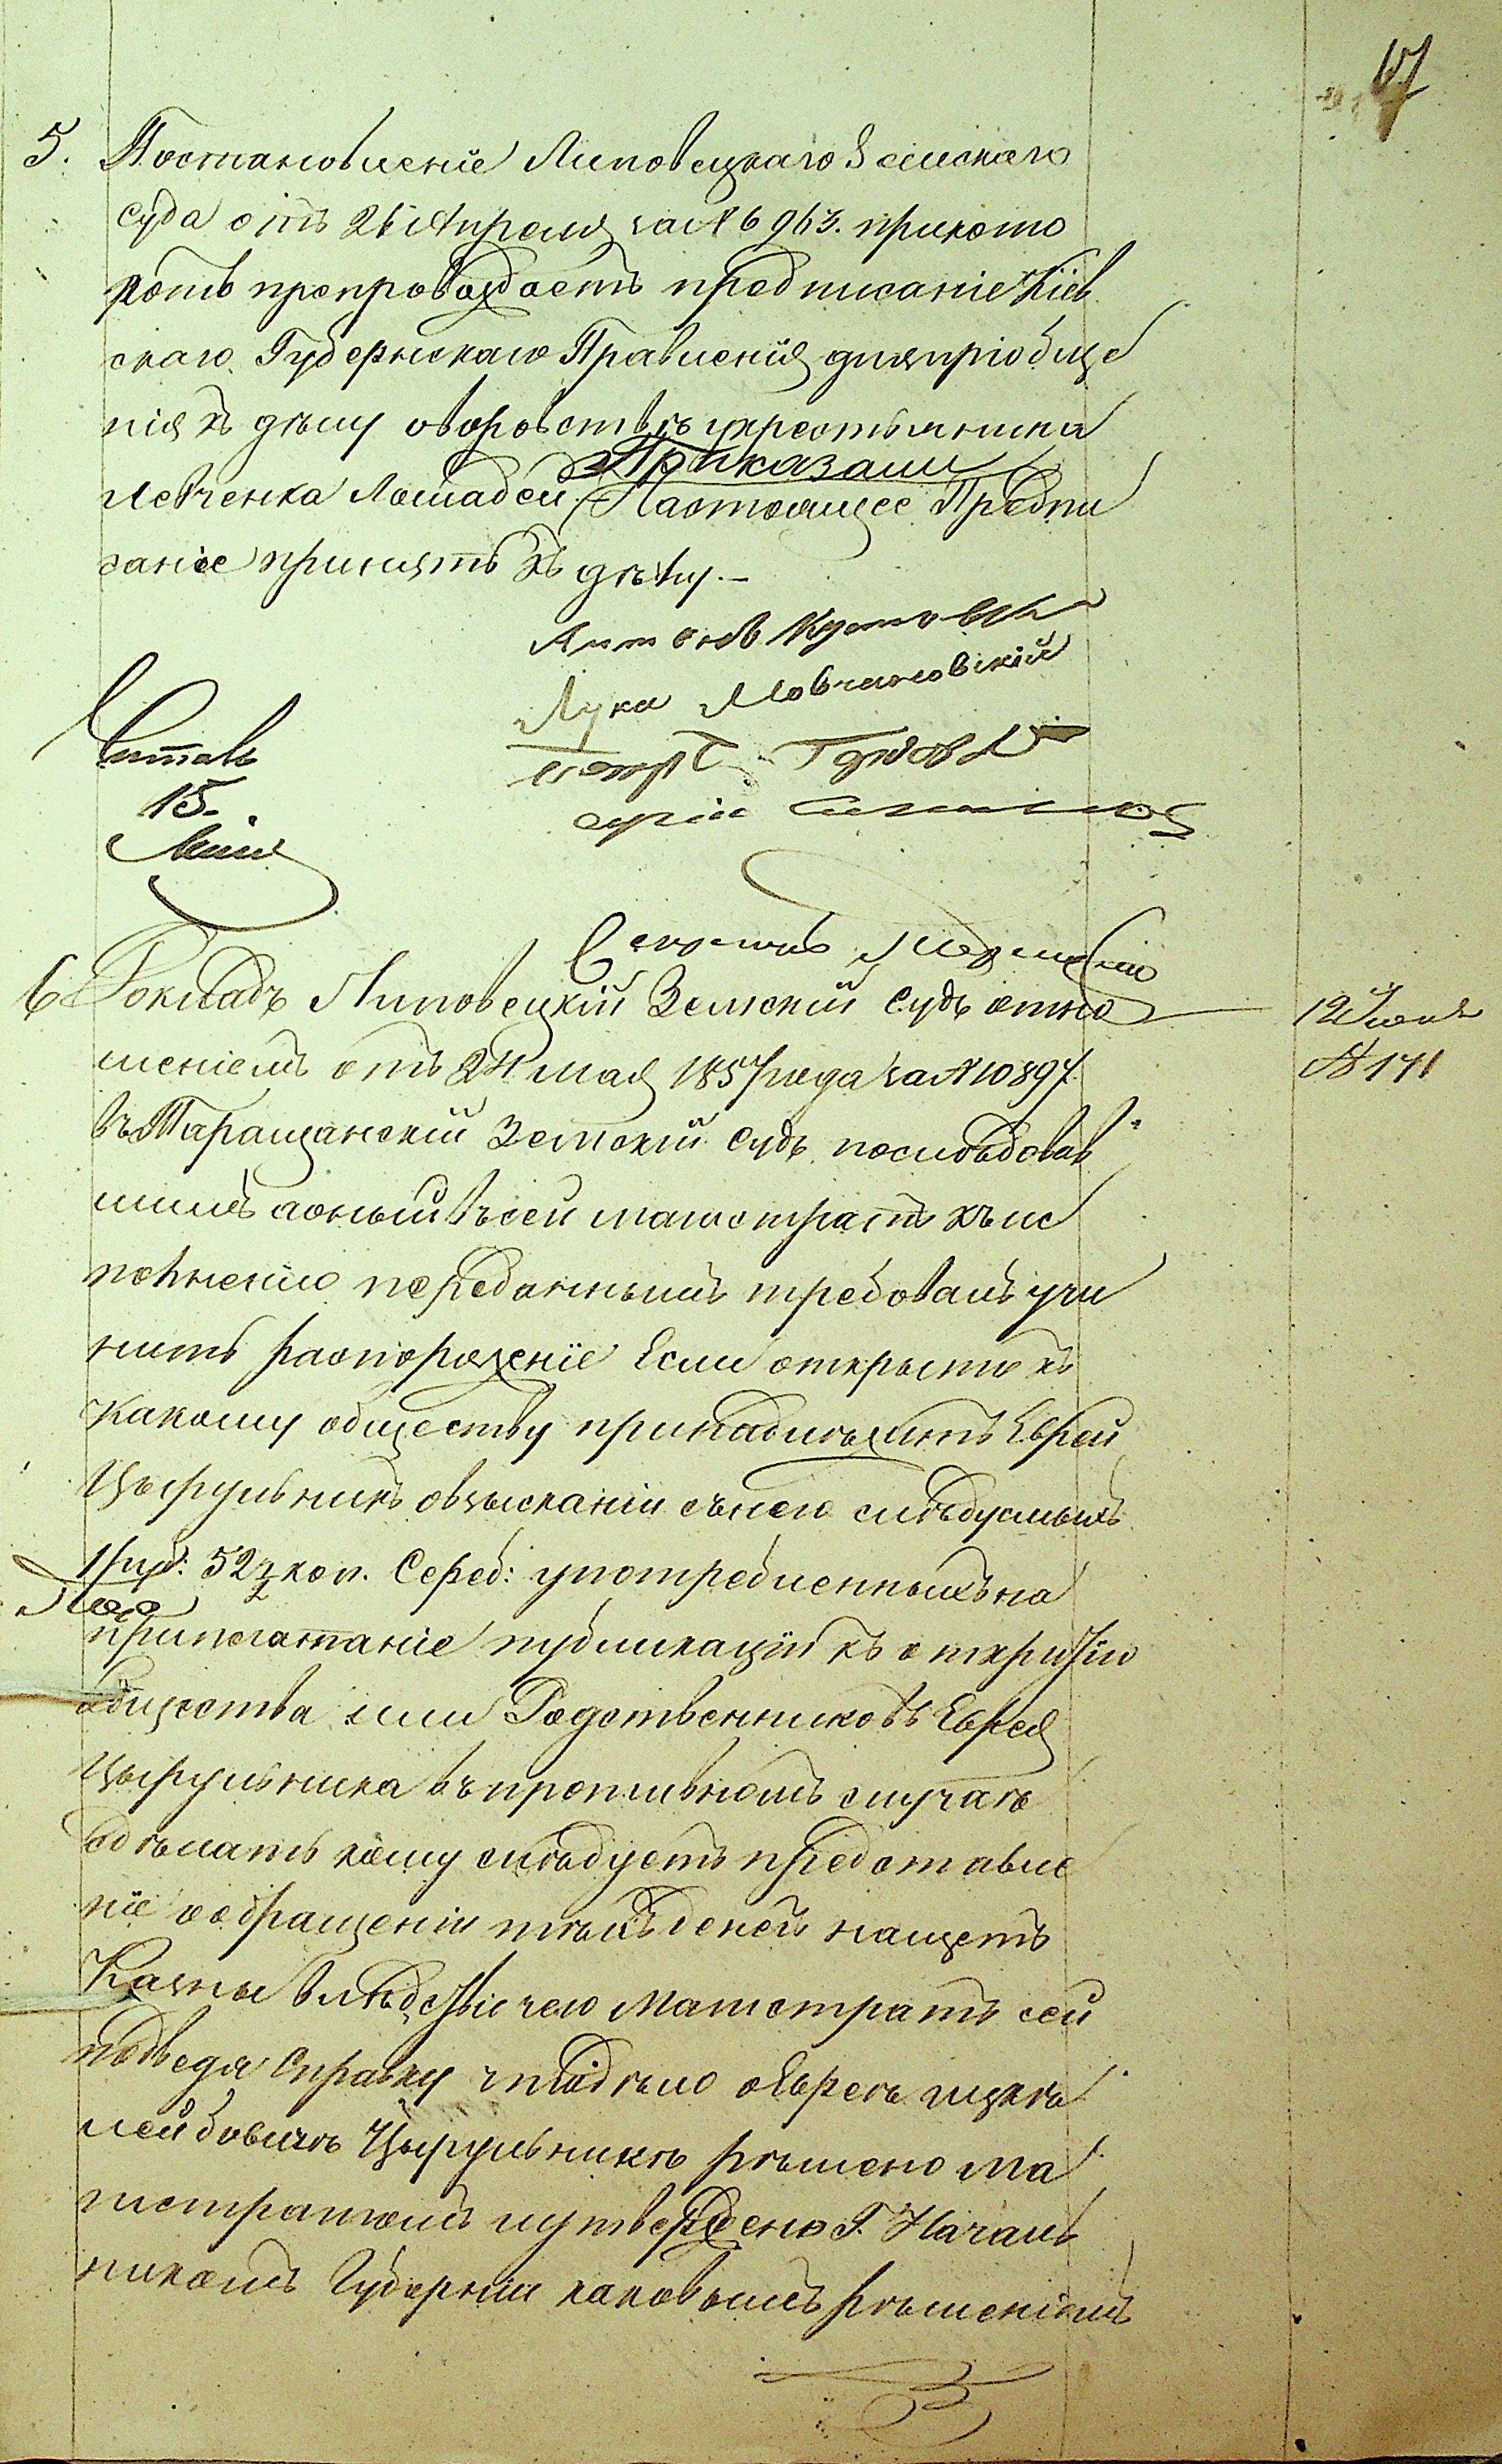 67
5. Постановленіе Липовецкаго Земскаго
суда отъ 26 Апреля за № 6963. прикото
ромъ препровождаетъ предписаніе Кіев
скаго Губернскаго Правленія для пріобще
нія къ делу о воровстве у крестьянина
Левченка Лошадей. Приказали
Настоящее Предпи
саніе принять къ делу.—
Антонъ
Лука Мовчановскій
Читалъ
15.
6 Докладъ Липовецкій Земскій Судъ отно
шеніемъ отъ 24 Мая 1857 года за № 10897
въ Таращанскій Земскій Судъ последовав
шимъ а онымъ въ сей магистратъ къ ис
полненію переданнымъ требовалъ учи
нить распоряженіе Если открыто къ
какому обществу принадлежитъ Еврей
Цырульникъ о взысканіи съ него следуемыхъ
1 руб: 52 1/2 коп. Сереб: употребленныхъ на
припечатаніе публикаціи къ открытію
общества или Родственниковъ Еврея
Цырульника въ противномъ случае
сделать кому следуетъ представле
ніе о обращеніи техъ денегъ на щетъ
Казны вследствіе чего Магистратъ сей
подведя Справку что дело о Еврее Ицке
Лейбовиче Цырульнике решено Ма
гистратомъ и утверждено Г. Началь
никомъ Губерніи каковымъ решеніемъ
12 Іюня
№ 141